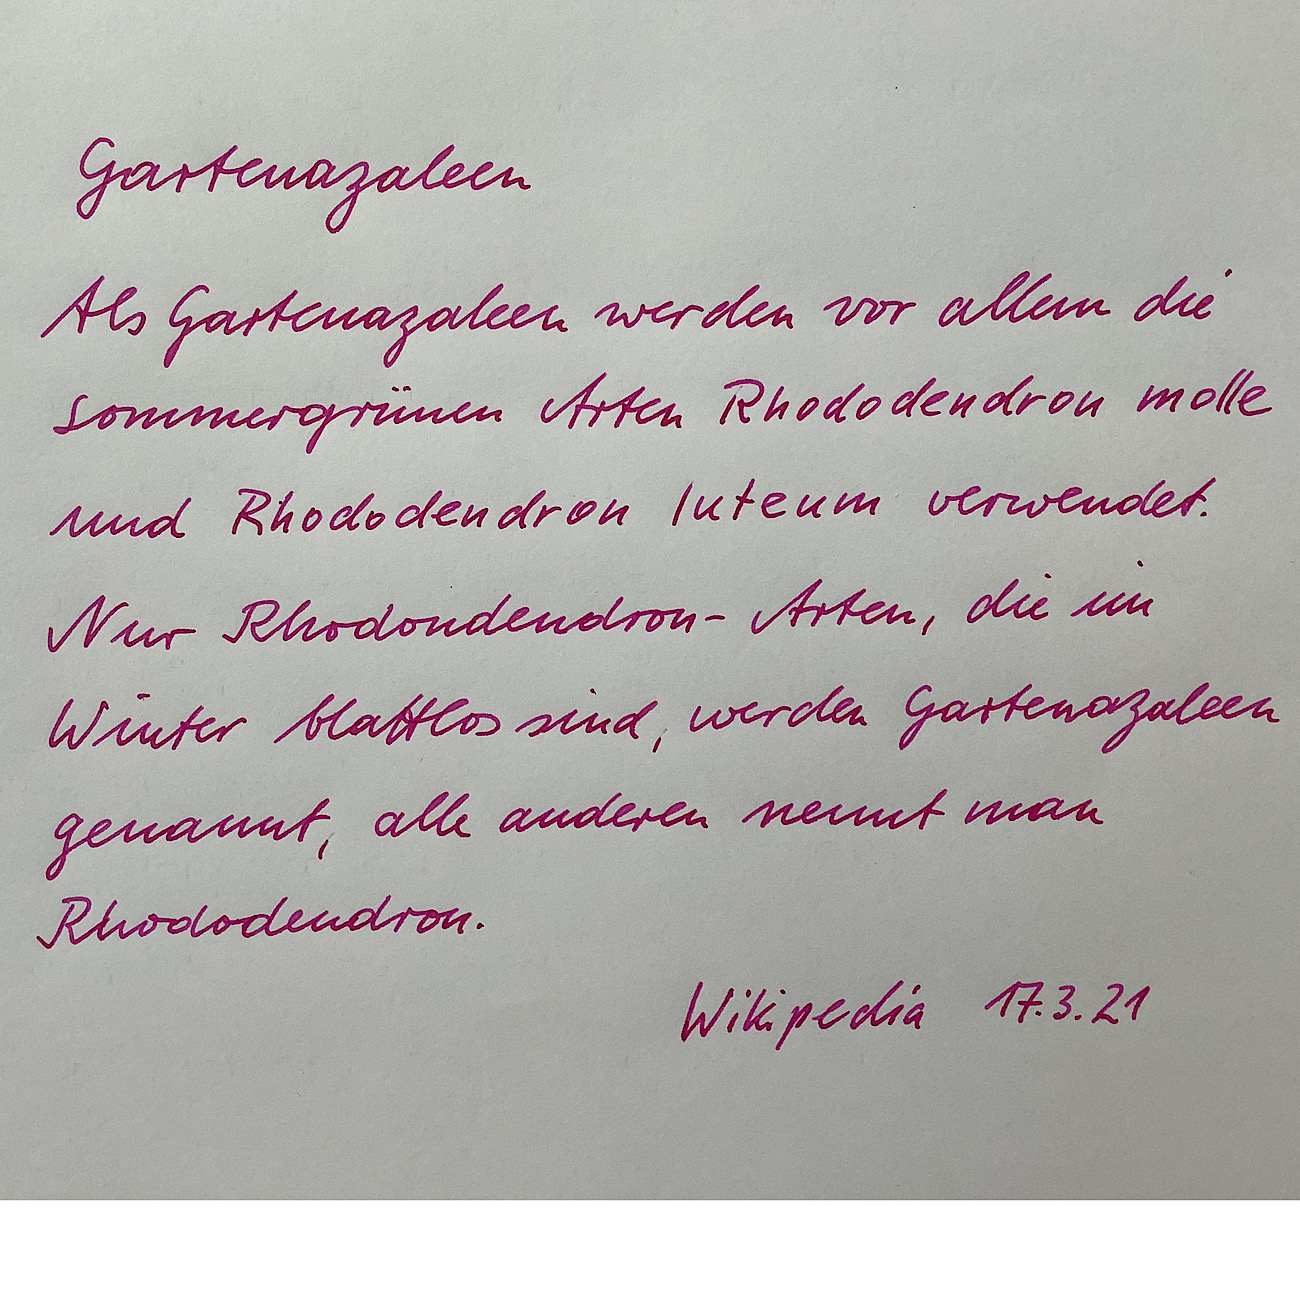 Gartenazaleen
Als Gartenazaleen werden vor allem die
sommergrünen Arten Rhododendron molle
und Rhododendron luteum verwendet.
Nur Rhodondendron-Arten, die im
Winter blattlos sind, werden Gartenazaleen
genannt, alle anderen nennt man
Rhododendron.
Wikipedia 17.3.21